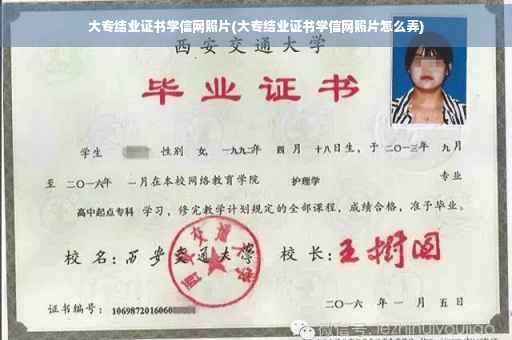 大专结业证书学信网照片(大专结业证书学信网照片怎么弄)
西安交通大学
毕业证书
学生 性别 女, 一九九二年 四 月 十八日生, 于 二〇一三年 九月
至 二〇一六年 一月在本校网络教育学院 护理学 专业
高中起点专科 学习, 修完教学计划规定的全部课程, 成绩合格, 准予毕业。
校 名: 西安交通大学 校 长: 王树国
西安交通大学
证书编号: 1069872016060
二〇一六 年 一 月 五 日
微信号: jiezhinuiyoujiao